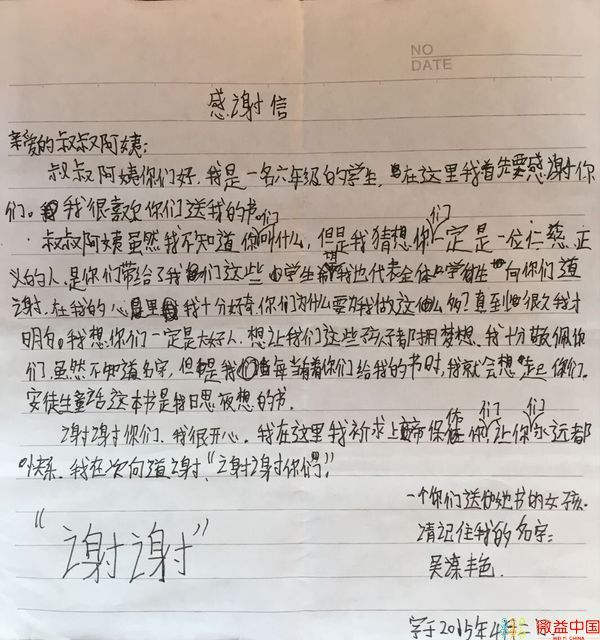 NO
DATE
感谢信
亲爱的叔叔阿姨:
叔叔阿姨你们好,我是一名六年级的学生,在这里我首先要感谢你
们。我很喜欢你们送我的书。
叔叔阿姨虽然我不知道你们叫什么,但是我猜想你们一定是一位仁慈正
义的人,是你们带给了我们这些学生希望我也代表全体学生向你们道
谢,在我的心里我十分好奇你们为什么要为我做这么多?直至很久我才
明白。我想你们一定是大好人,想让我们这些孩子都拥梦想,我十分敬佩你
们,虽然不知道名字,但是我们每当看着你们给我的书时,我就会想起你们。
安徒生童话这本书是我日思夜想的书。
谢谢你们,我很开心,我在这里我祈求上帝保佑你们让你们永远都
快乐,我在次向道谢,“谢谢你们”,
一个你们送他她书的女孩.
请记住我的名字:
吴 丰色.
“谢谢”
字于2015年4月二
微益中国
WEIYI CHINA